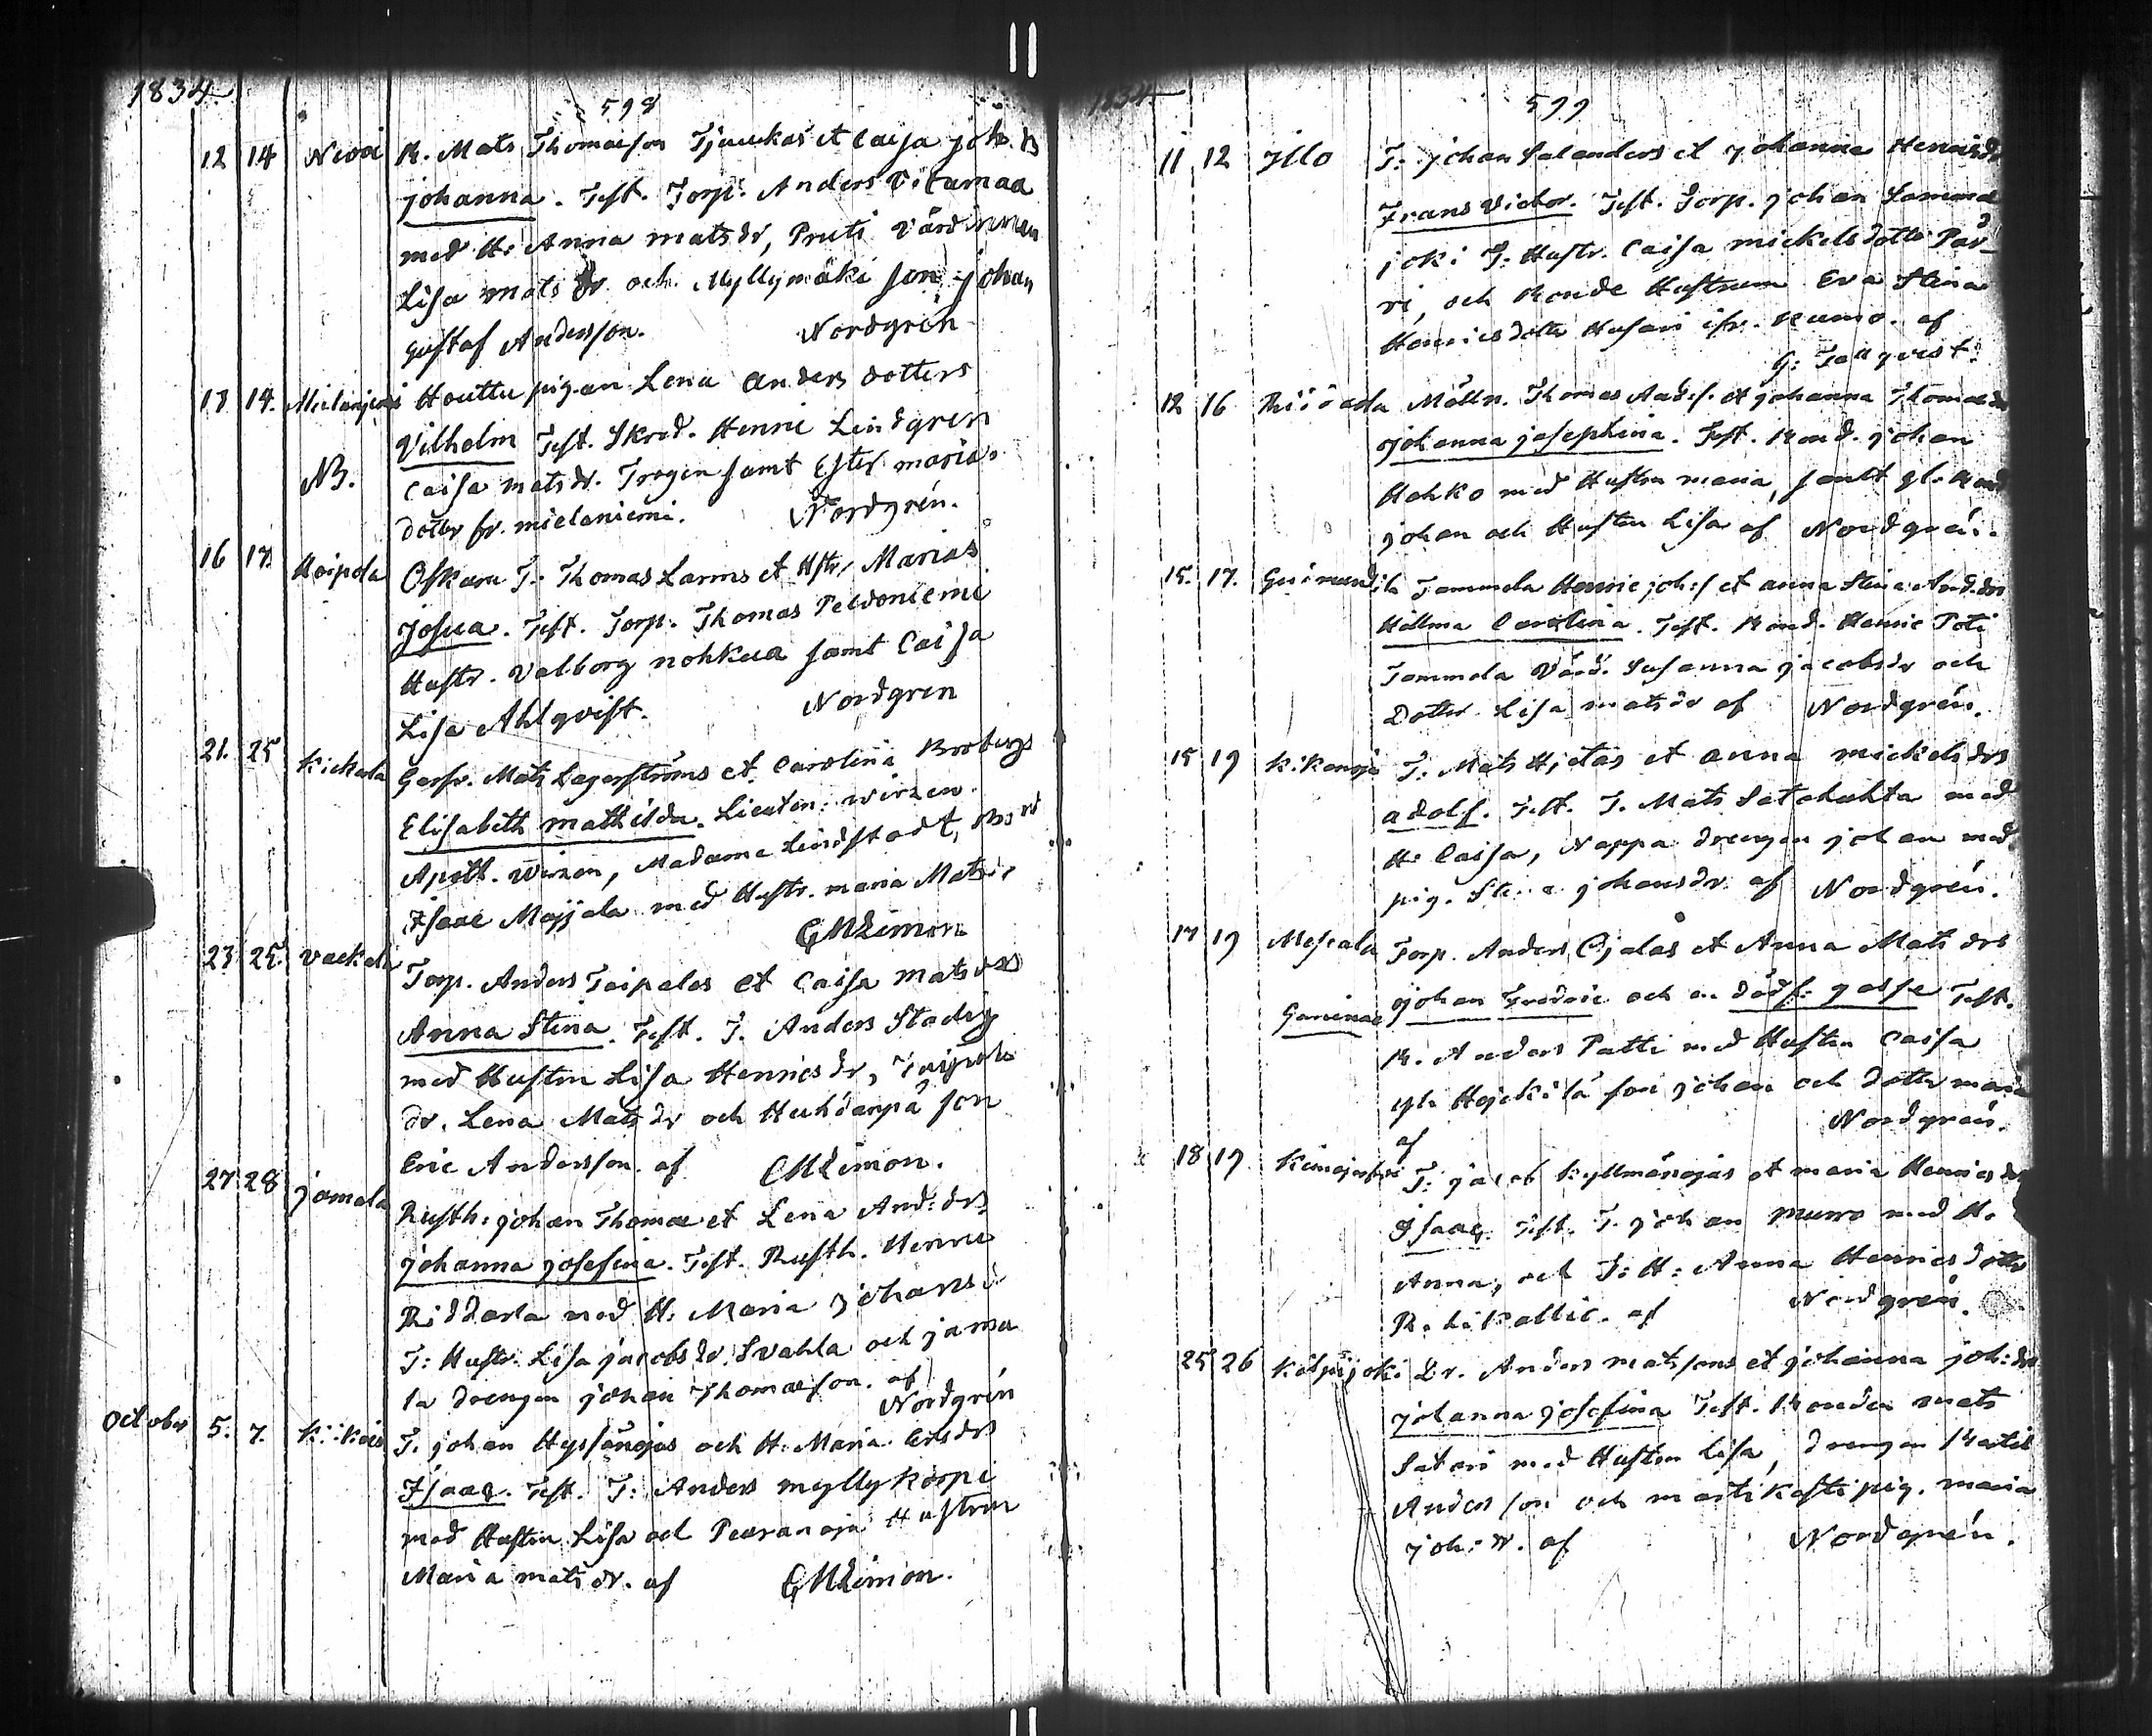 1834.
598
12 14 Nervi R. Mats Thomasson Tjuukas et Caisa joh. ds
johanna. Test. Torp. Anders Vitamaa
med H. Anna matsdr, Pruti Värdinnan
Lisa mats dr. och Myllymäki son johan
gustaf Andersson. Nordgren
13 14. Mielanjemi Houttu pigan Lena anders dotters
Vilhelm Test. Skred. Henric Lindgren
NB. Caisa matsdr. Trogen samt Ester maria
dotter fr. mielaniemi. Nordgrén.
16 17 Hoipola Oskara T. Thomas Larms et Hstr. Marias
Josua. Test. Torp. Thomas Peldoniemi
Hustr. Valborg nohkua samt Caisa
Lisa Ahlqvist. Nordgren
21. 25 Kickela Garfv. Mats Lagerströms et Carolina Brobergs
Elisabeth mathilda. Lieuten. wirzen
Apoth. Wirzen, Madame Lindstadt, Bond
Isaac Mayjala med Hustr. maria Matsdr
GMLimon
23 25. vackela Torp. Anders Taipales et Caisa mats drs
Anna Stina. Test. T. Anders Stadig
med Hustrun Lisa Henrics dr, Taipale
dr. Lena Mats dr och Huhdanpä son
Eric Andersson. af GMLimon.
27 28 jamala Rusth: johan Thomae et Lena And: drs
johanna josefina. Test. Rusth. Henric
Riddarla med H. Maria johansd
T: Hustr. Lisa jacobs dr. Svahla och jama
la drengen johan Thomasson. af
Nordgrén
October 5. 7. Kiikois T. johan Hyssänojas och H. Maria Ersdrs
Isaac. Test. T: Anders myllykorpi
med Hustrun Lisa och Peuranoja Hustrun
Maria mats dr. af GMLimon.
1834.
599
11 12 jllo T. johan Salanders et johanna Henrisdr
Frans Victor. Test. Torp. johan Samma
joki T. Hustr. Caisa mickelsdotter Pär
ri, och Bonde Hustrun Eva Stina
Henricsdotter Husari ifr. Kumo. af
G: Tallqvist.
12 16 Möln. Thomas Anders. et johanna Thomaedr
johanna josephina. Test. Bond. johan
Hohko med Hustru maria, samt gl. Bond
johan och Hustru Lisa af Nordgrén.
15. 17. Tammela Henric joh:s et anna Stina And.drs
Hillma Carolina. Test. Bond. Henric Poti
Tammela Värd. Susanna jacobsdr och
Dotter Lisa matsdr af Nordgrén.
15 19 Kikanoja T. Mats Hjetas et anna mickels drs
adolf. Test. T. Mats Satahuhta med
H. Caisa, Nappa drengen johan med
pig. Stina johansdr. af Nordgrén.
17 19 Messala Torp. Anders Ojalas et Anna Mats drs
Geminae johan Fredric och en dödf. gosse Test.
R. Anders Patti med Hustru Caisa
son johan och dotter maria
af Nordgrén.
18 19 T: jacob Kyllmänojas et maria Henrics drs
Isaac. Test. T. johan Murro med H.
Anna, och T: H: Anna Henricsdotter
af Nordgrén.
25 26 Kilpijoki Dr. Anders matssons et johanna joh: drs
johanna josefina Test. Bonden mats
Satari med Hustru Lisa, drengen
Andersson och pig. maria
joh: dr. af Nordgrén.